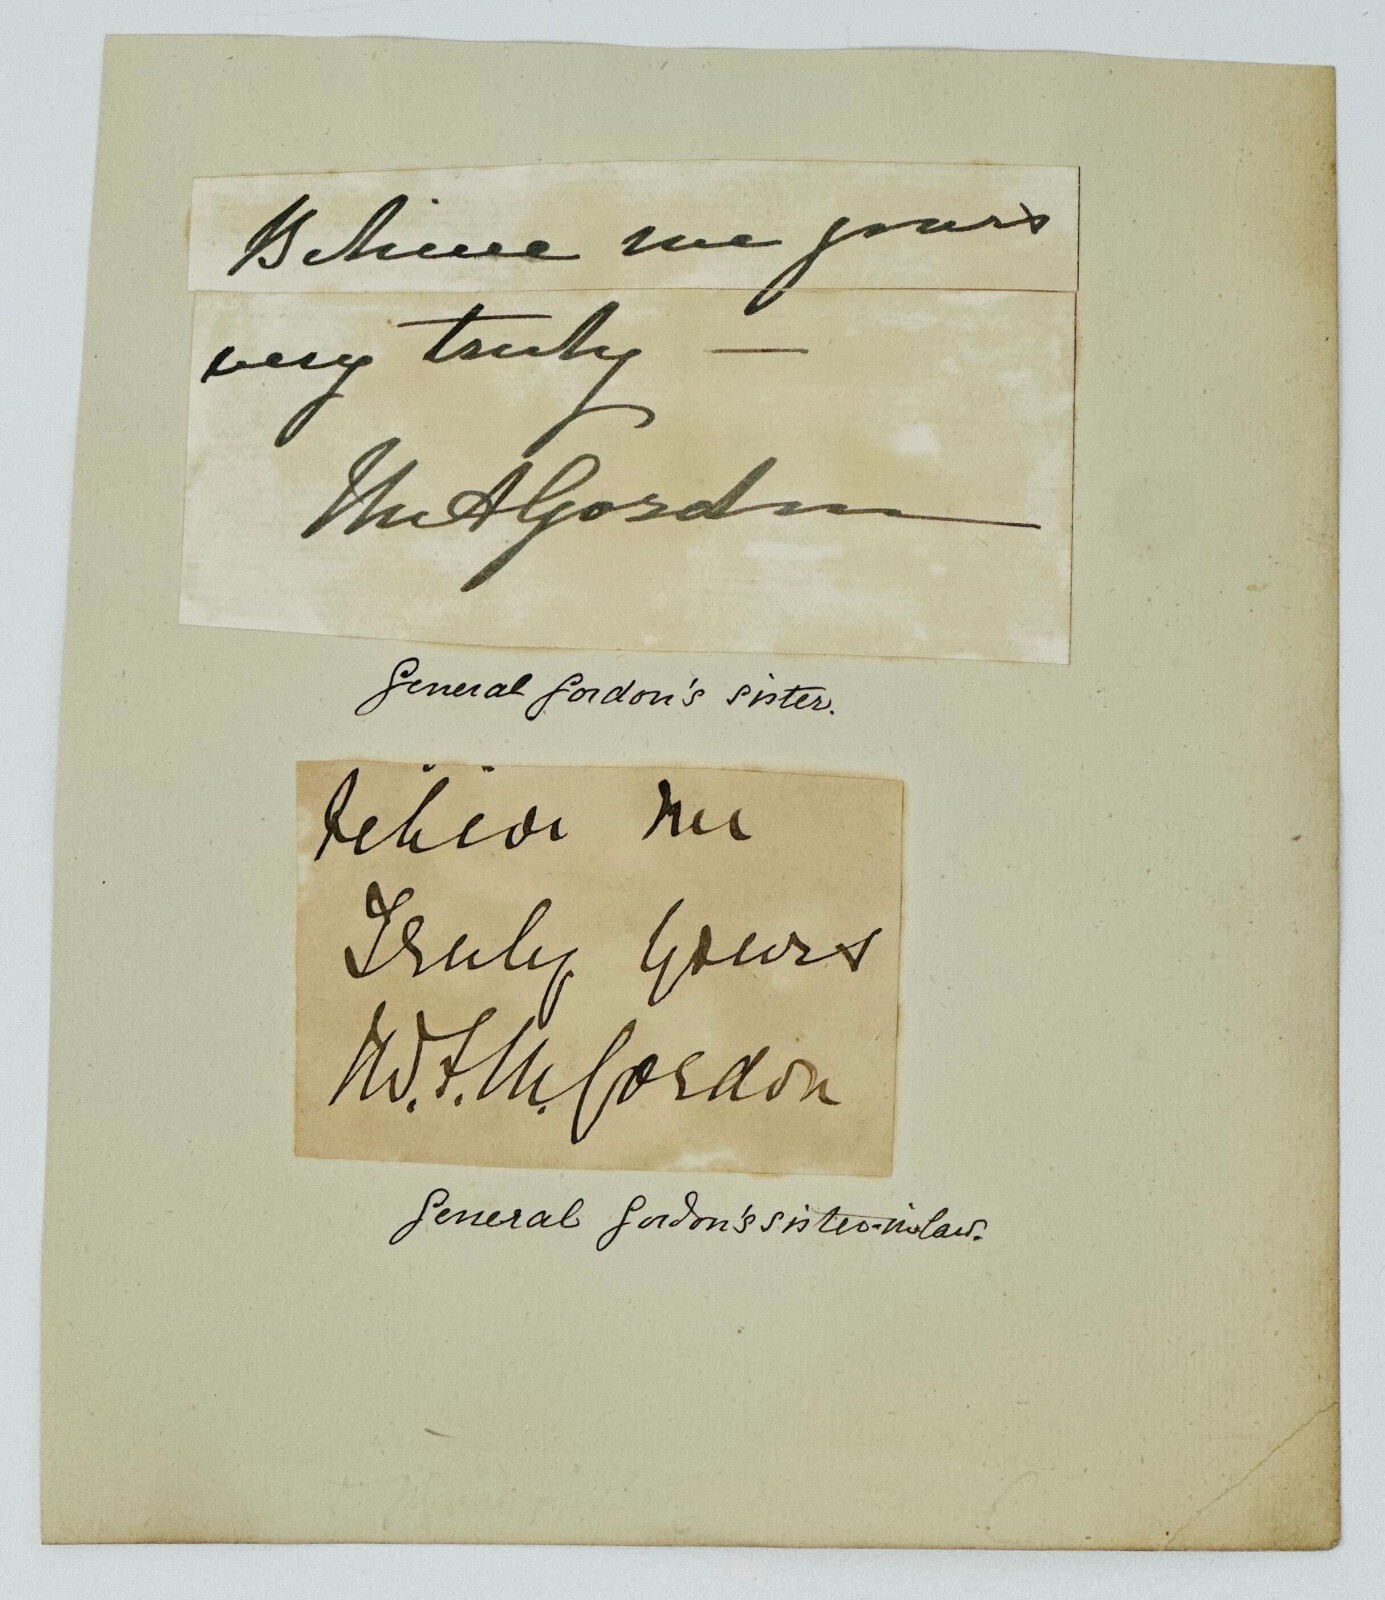 Believe me yours
very truly —
M A Gordon
General Gordon's sister.
believe me
Truly Yours
W.F.M. Gordon
General Gordon's sister-in-law.